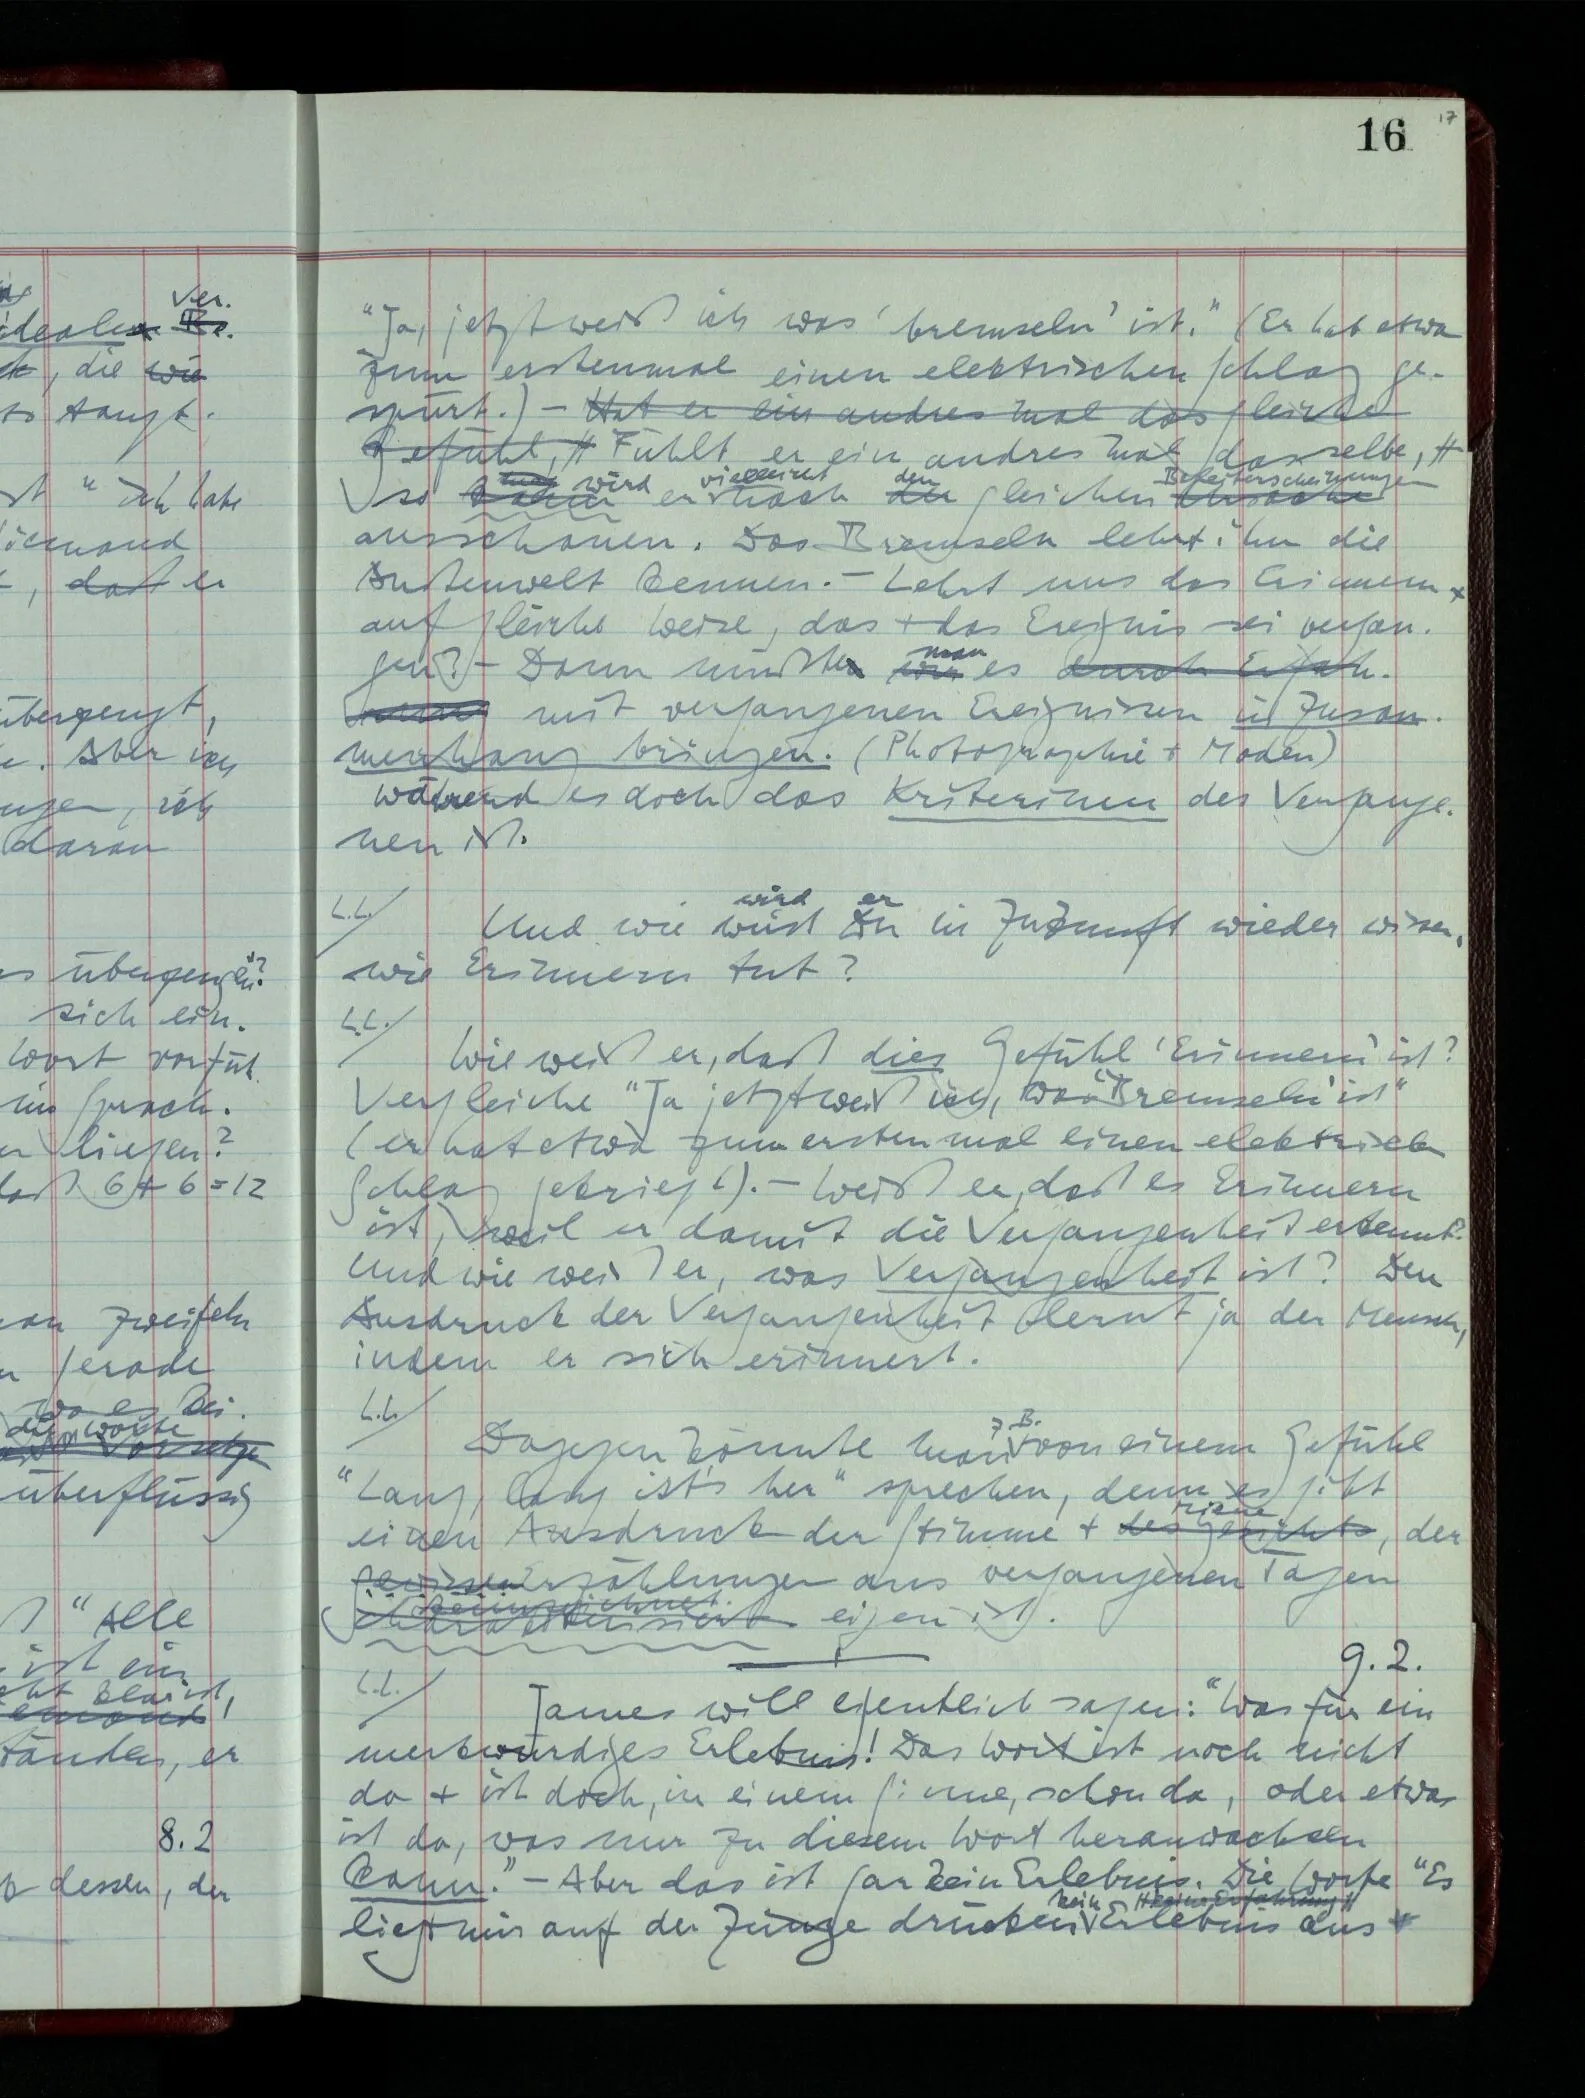 Ver.
idealen Be.
, die wie
taugt.
" ich habe
jemand
, daß er
überzeugt,
. Aber ich
, ich
daran
überzeugen?"
sich ein.
Wort vorfüh
im Sprach.
liegen?
daß 6 + 6 = 12
man zweifeln
gerade
wo es bei.
überflüssig
" Alle
ist ein
nicht klar ist,
jemand
, er
8.2
dessen, der
16
17
"Ja, jetzt weiß ich was 'bremseln' ist." (Er hat etwa
zum erstenmal einen elektrischen Schlag ge-
spürt.) – Hat er ein andres Mal das gleiche
Gefühl, // Fühlt er ein andres Mal dasselbe, //
man wird vielleicht den Begleiterscheinungen
so kann er nach der gleichen Ursache
ausschauen. Das Bremseln lehrt ihn die
Außenwelt kennen. – Lehrt uns das Erinnern
auf gleiche Weise, das + das Ereignis sei vergan-
man
gen? – Dann müßten wir es durch Erfah-
rung mit vergangenen Ereignissen in Zusam-
menhang bringen. (Photographie + Moden)
während es doch das Kriterium des Vergange-
nen ist.
wird er
Und wie wirst Du in Zukunft wieder wissen,
wie Erinnern tut?
Wie weiß er, daß dies Gefühl 'Erinnern' ist?
Vergleiche "Ja jetzt weiß ich, was 'Bremseln' ist"
(er hat etwa zum erstenmal einen elektrisch
Schlag gekriegt). – Weiß er, daß es Erinnern
ist, weil er damit die Vergangenheit erkennt?
Und wie weiß er, was Vergangenheit ist? Den
Ausdruck der Vergangenheit lernt ja der Mensch,
indem er sich erinnert.
z.B.
Dagegen könnte man von einem Gefühl
"Lang, lang ist's her" sprechen, denn es gibt
Miene
einen Ausdruck der Stimme + des Gesichts, der
gewissen Erzählungen aus vergangenen Tagen
kennzeichnet.
charakterisiert eigen ist.
9.2.
James will eigentlich sagen: "Was für ein
merkwürdiges Erlebnis! Das Wort ist noch nicht
da + ist doch, in einem Sinne, schon da, oder etwas
ist da, was nur zu diesem Wort heranwachsen
kann." – Aber das ist gar kein Erlebnis. Die Worte "Es
kein // keine Erfahrung //
liegt mir auf der Zunge drücken Erlebnis aus +